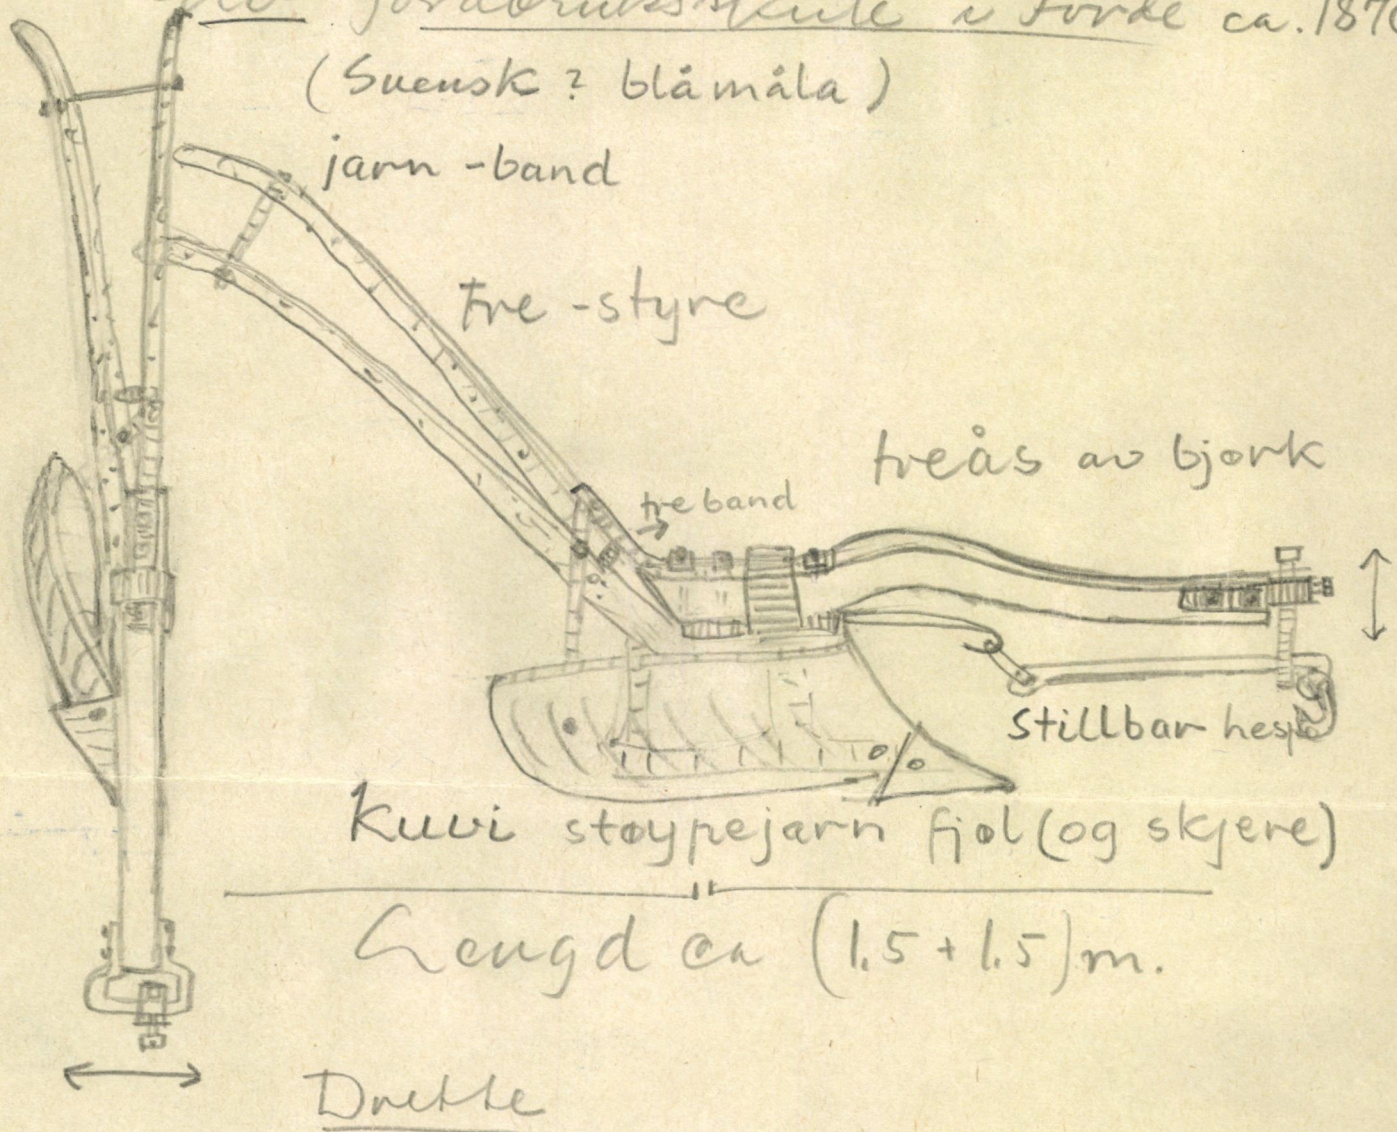 jordbruksskule i Førde ca. 187
(Svensk? blåmåla)
jarn-band
tre-styre
treås av bjørk
tre band
stillbar hesp
Kuvi støypejarn fjøl (og skjere)
Lengd ca (1.5 + 1.5) m.
Drette